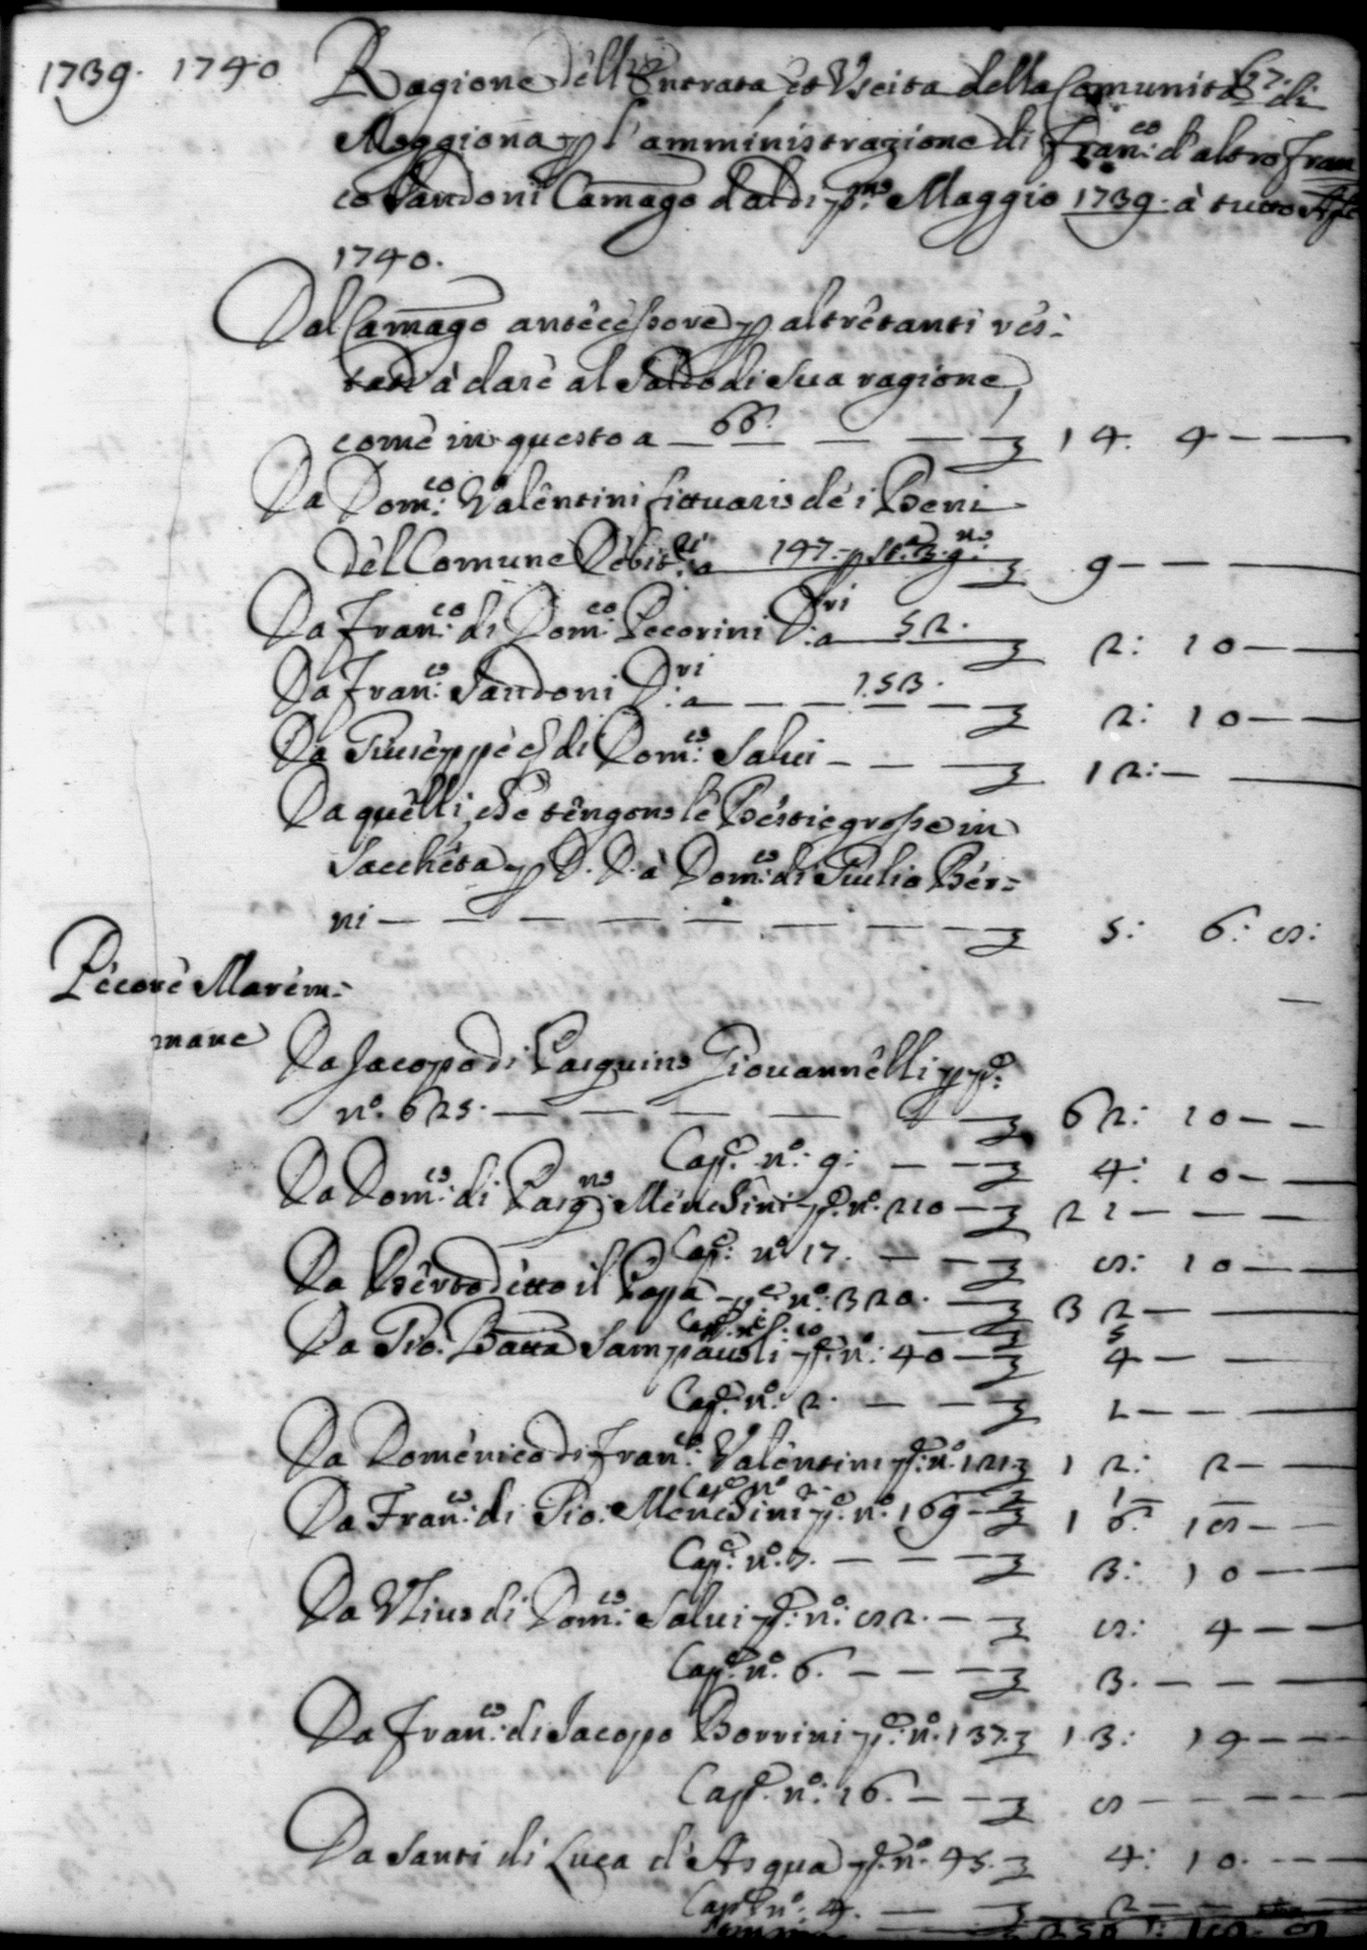 1739. 1740 Ragione dell'Entrata et Uscita della Comunità di 67.
Moggiona p l'amministrazione di Fran.co d'altro Fran
co Sandoni Camago dal di p.mo Maggio 1739. à tutto Aple
1740.
Dal Camago antecessore p altretanti res:
tati à dare al Saldo di sua ragione
come in questo a 66. — — — 14: 4 — —
Da Dom.co Valentini fittuario de i Beni
del Comune Debit.ri a 147. 9 — —
Da Fran.co di Dom.co Pecorini D.ri a 52. 2: 10 — —
Da Fran.co Sandoni D.ri a 153. — — — 2: 10 — —
Da Giuseppe di Dom.co Salvi — — — 12: — —
Da quelli, che tengono le Bestie grosse in
Saccheta p D. D. à Dom.co di Giulio Ber=
ni — — — — — — — 5: 6: 8:
Pecore Marem=
mane
Da Jacopo di Pasquino Giovannelli p p.e
n.o 625. — — — — — 62: 10 — —
Cap.e n.o: 9: — — 4: 10 — —
Da Dom.co di Pasq.no Menchini p.e n.o 210 — 21 — — —
Cap.e n.o 17. — — — 8: 10 — —
Da Berto detto il Papa p.e n.o: 320. — 32 — —
Cap.e n.o: 10 — 5
Da Gio: Batta Sampaoli p.e n.o: 40 — 4 — —
Cap.e n.o: 2. — — — 1 — — —
Da Domenico di Fran.co Valentini p.e n.o 121 12: 2 — —
Cap.e n.o 2. 1 — —
Da Fran.co di Gio: Menchini p.e n.o: 169 — 16: 18 — —
Cap.e n.o 7. — — — 3: 10 — —
Da Ulivo di Dom.co Salvi p.e n.o: 82. — 8: 4 — —
Cap.e n.o 6. — — — 3. — — —
Da Fran.co di Jacopo Borrini p.e n.o 137. 13: 14 — —
Cap.e n.o: 16. — — 8 — — —
Da Santi di Luca d'Asqua p.e n.o 45. 4: 10. — —
Cap.e n.o: 4. — 2 — —